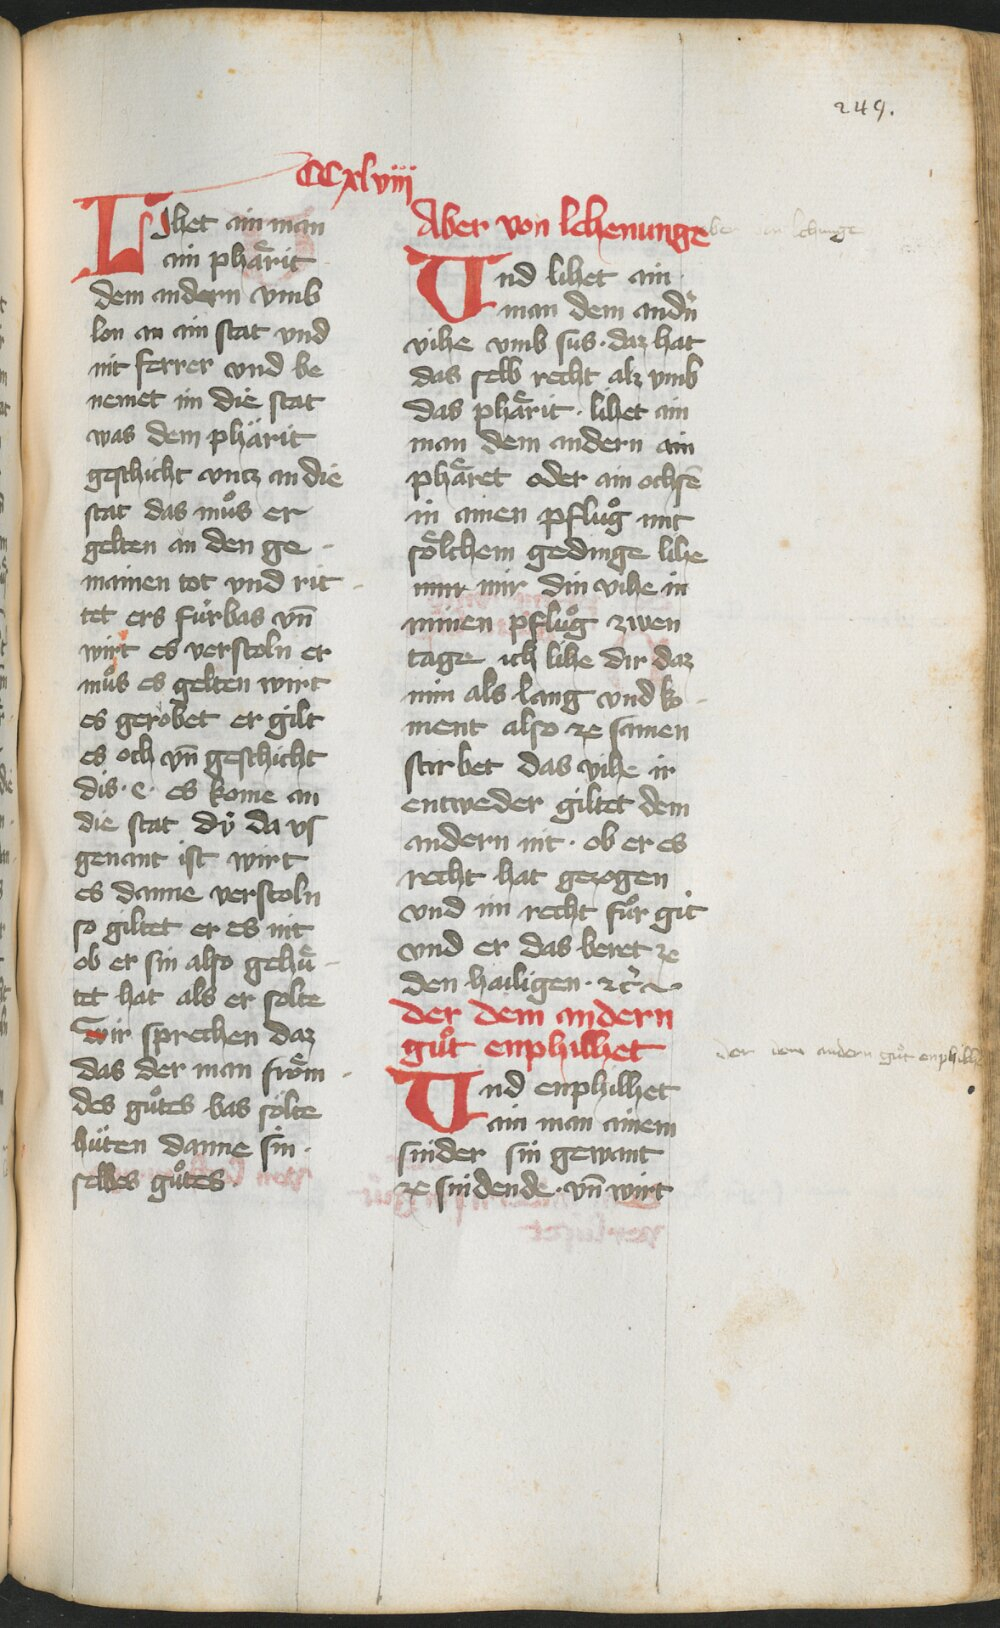 249.
CCxlviii
Lihet ain man
ain phärit
dem andern vmb
lon an ain stat vnd
nit ferrer vnd be
nemet im die stat
was dem phärit
geschicht vntz an die
stat das muͦs er
gelten an den ge-
mainen tot vnd rit-
tet ers fürbas vn̄
wirt es verstoln er
muͦs es gelten wirt
es geröbet er gilt
es och vn̄ geschicht
dis · e · es kome an
die stat dü da vs
genant ist wirt
es danne verstoln
so giltet er es nit
ob er sin also gehuͤ-
tet hat als er solte
wir sprechen daz
das der man froͤm-
des guͦtes bas sölte
hüten danne sin ·
selbes guͦtes ·
Aber von lehenunge
Vnd lihet ain
man dem andn̄
vihe vmb sus · daz hat
das selb recht alz vmb
das phärit · lihet ain
man dem andern ain
phäret oder ain ochsē
in ainen pfluͦg mit
soͤlchem gedinge lihe
mir din vihe in
minen pfluͦg zwen
tage ich lihe dir daz
min als lang vnd ko-
ment also ze samen
stirbet das vihe ir
entweder giltet dem
andern nit · ob er es
recht hat gezogen
vnd im recht fuͦr git
vnd er das beret ze
den hailigen · ꝛc̄
der dem andern
guͦt enphilhet
Vnd enphilhet
ain man ainem
snider sin gewant
ze snidende · vn̄ wirt
der dem andern guͦt enphilhet